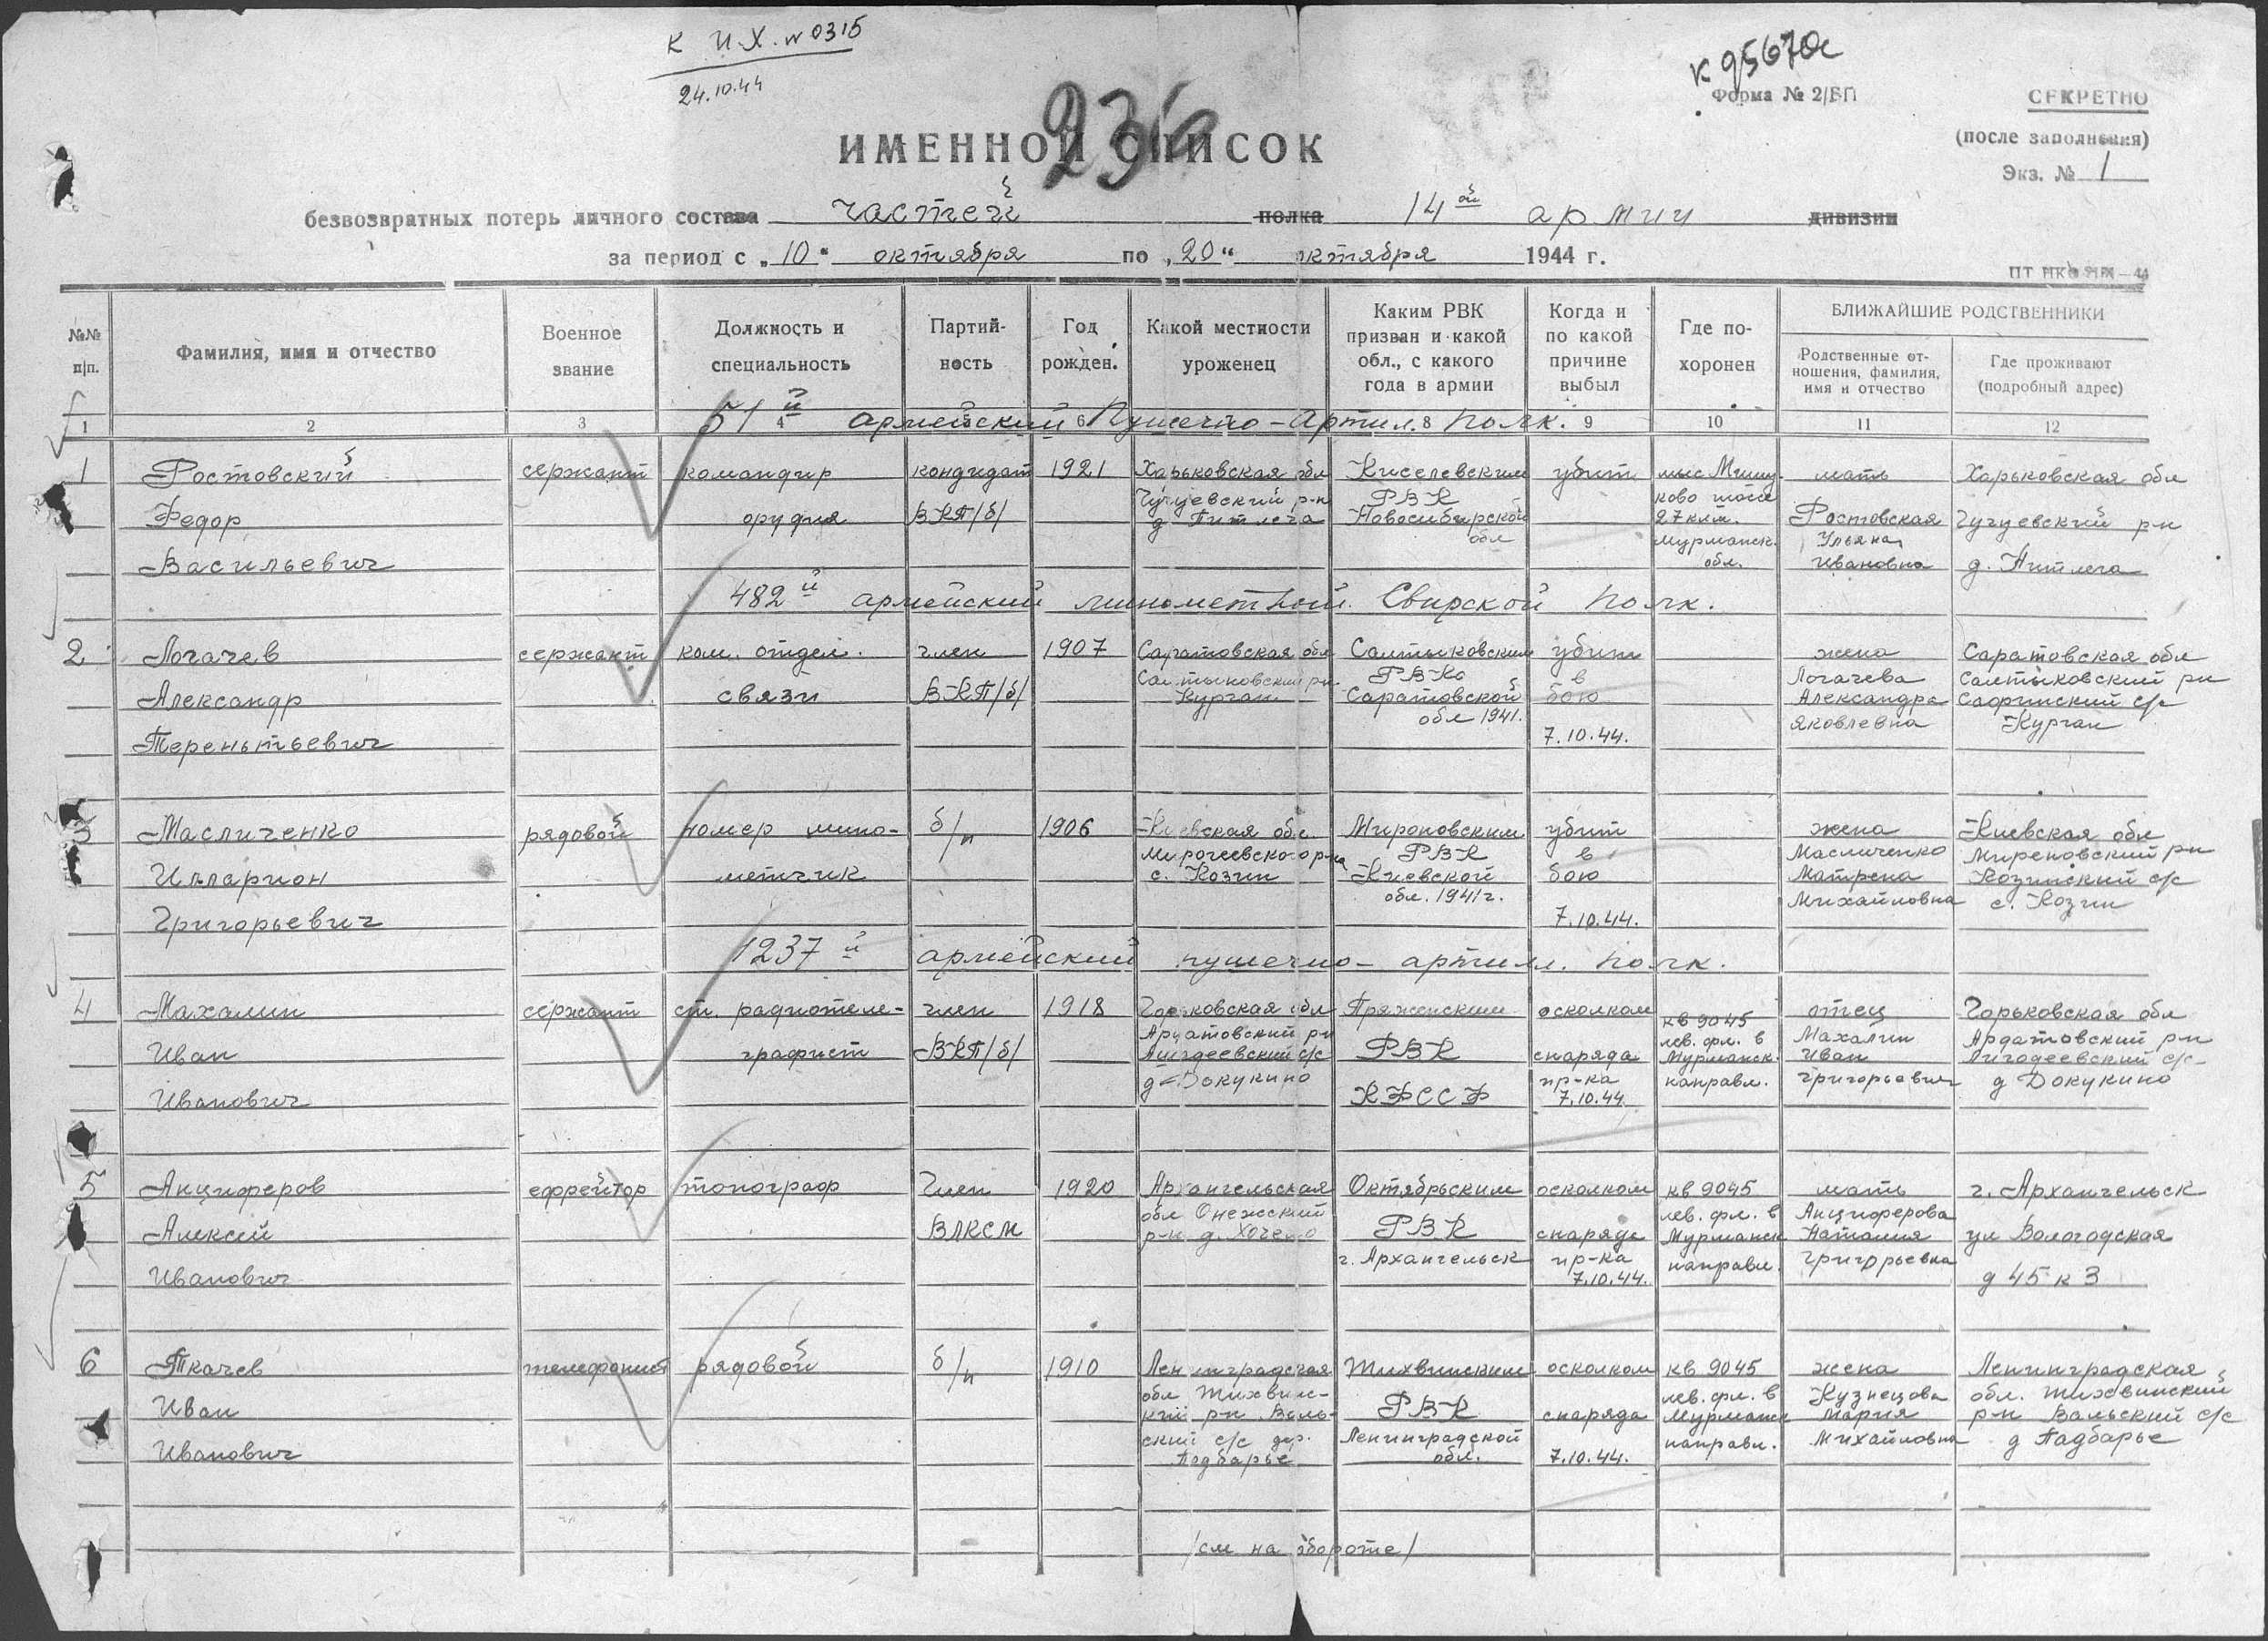 К И.Х. № 0315
24.10.44
к 95670с
Форма № 2/БП
СЕКРЕТНО
(после заполнения)
Экз. № 1
ИМЕННОЙ СПИСОК
безвозвратных потерь личного состава частей полка 14ой армии дивизии
за период с „10“ октября по „20“ октября 1944 г.
№№ п/п.
Фамилия, имя и отчество
Военное звание
Должность и специальность
Партийность
Год рожден.
Какой местности уроженец
Каким РВК призван и какой обл., с какого года в армии
Когда и по какой причине выбыл
Где похоронен
БЛИЖАЙШИЕ РОДСТВЕННИКИ
Родственные отношения, фамилия, имя и отчество
Где проживают (подробный адрес)
1 2 3 4 6 8 9 10 11 12
51й армейский Пушечно-Артил. полк.
1 Ростовский Федор Васильевич
сержант
командир орудия
кондидат ВКП/б/
1921
Харьковская обл Чугуевский р-н д
Киселевским РВК Новосибирской обл
убит
мыс Мишуково шоссе 27 клм. Мурманск. обл.
мать Ростовская Ульяна Ивановна
Харьковская обл Чугуевский рн д.
482й армейский минометный Свирской полк.
2 Логачев Александр Терентьевич
сержант
ком. отдел. связи
член ВКП/б/
1907
Саратовская обл Салтыковский рн Курган
Салтыковским РВКо Саратовской обл 1941.
убит в бою 7.10.44.
жена Логачева Александра Яковлевна
Саратовская обл Салтыковский рн с/с Курган
3 Масличенко Илларион Григорьевич
рядовой
номер минометчик
б/п
1906
Киевская обл. с. Козин
Мироновским РВК Киевской обл. 1941г.
убит в бою 7.10.44.
жена Масличенко Матрена Михайловна
Киевская обл Мироновский рн Козинский с/с с. Козин
1237й армейский пушечно-артилл. полк.
4 Махалин Иван Иванович
сержант
ст. радиотелеграфист
член ВКП/б/
1918
Горьковская обл Ардатовский рн с/с д Докукино
Пряженским РВК КФССР
осколком снаряда пр-ка 7.10.44
кв 9045 лев. фл. в Мурманск. направл.
отец Махалин Иван Григорьевич
Горьковская обл Ардатовский рн с/с д Докукино
5 Анциферов Алексей Иванович
ефрейтор
топограф
Член ВЛКСМ
1920
Архангельская обл Онежский р-н д.
Октябрьским РВК г. Архангельск
осколком снаряда пр-ка 7.10.44.
кв 9045 лев. фл. в Мурманск направл.
мать Анциферова Наталия Григорьевна
г. Архангельск ул Вологодская д 45 к 3
6 Ткачев Иван Иванович
телефонист
рядовой
б/п
1910
Ленинградская обл Тихвинский рн Вальский с/с дер. Подбарье
Тихвинским РВК Ленинградской обл.
осколком снаряда 7.10.44.
кв 9045 лев. фл. в Мурманск направл.
жена Кузнецова Мария Михайловна
Ленинградская обл. Тихвинский р-н Вальский с/с д Падбарье
/см на обороте/